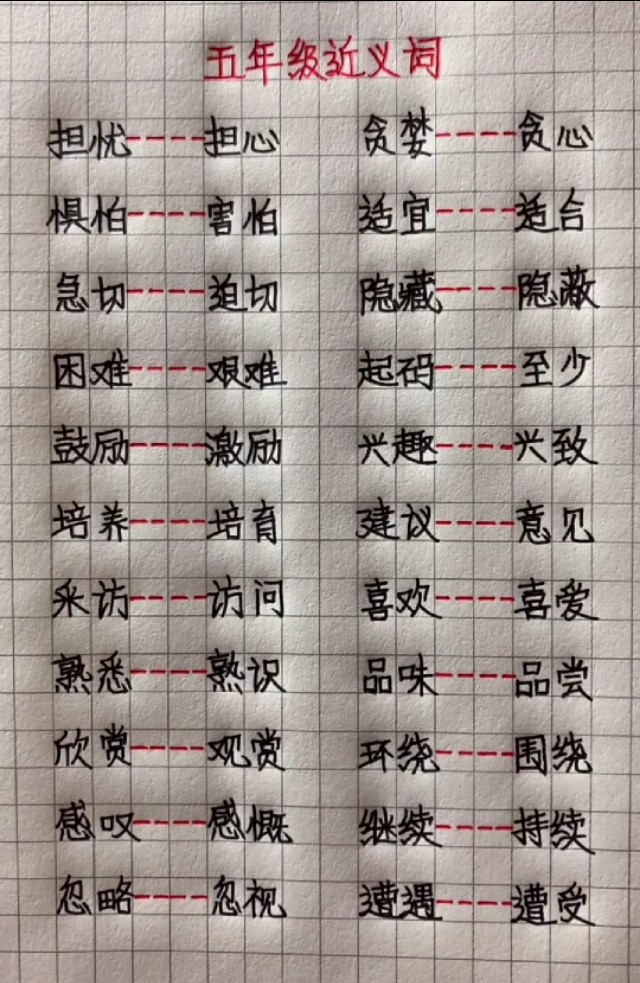 五年级近义词
担忧----担心 贪婪----贪心
惧怕----害怕 适宜----适合
急切----迫切 隐藏----隐蔽
困难----艰难 起码----至少
鼓励----激励 兴趣----兴致
培养----培育 建议----意见
采访----访问 喜欢----喜爱
熟悉----熟识 品味----品尝
欣赏----观赏 环绕----围绕
感叹----感慨 继续----持续
忽略----忽视 遭遇----遭受